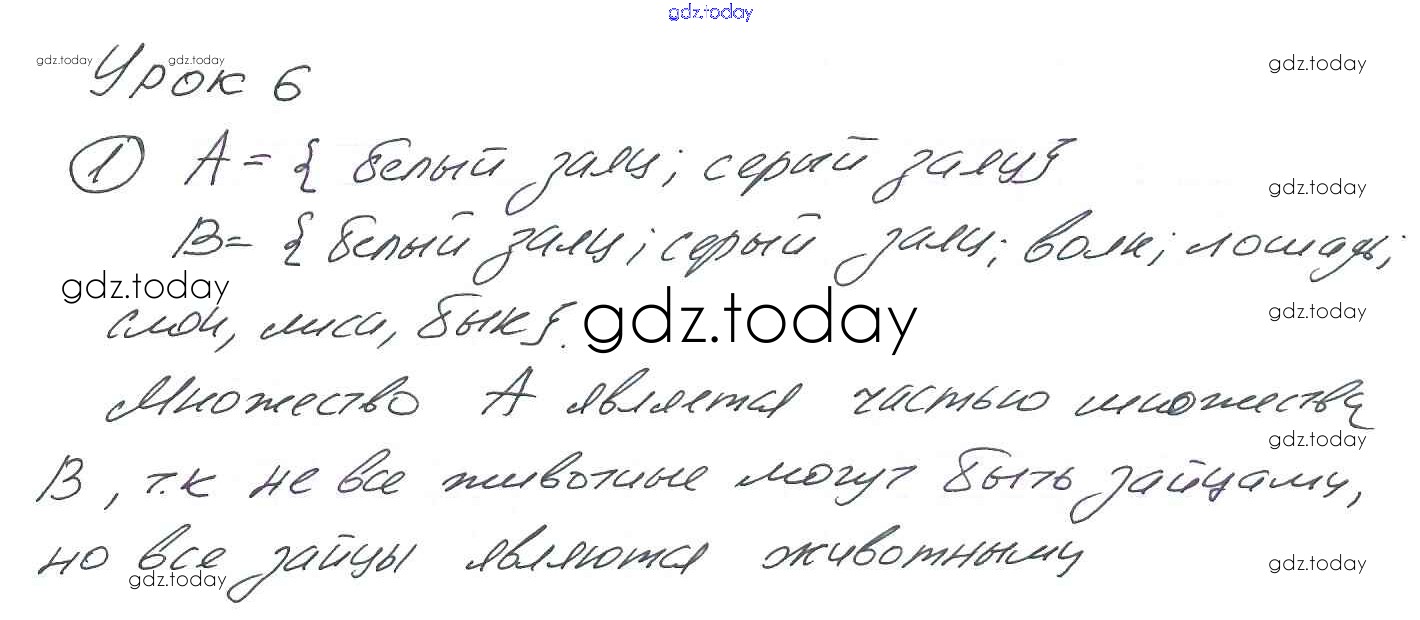 gdz.today
gdz.today gdz.today gdz.today
Урок 6
① A = { белый заяц; серый заяц}
gdz.today
B = { белый заяц; серый заяц; волк; лошадь;
gdz.today
слон, лиса, бык}. gdz.today gdz.today
Множество A является частью множества
gdz.today
B, т.к не все животные могут быть зайцами,
но все зайцы являются животными
gdz.today gdz.today